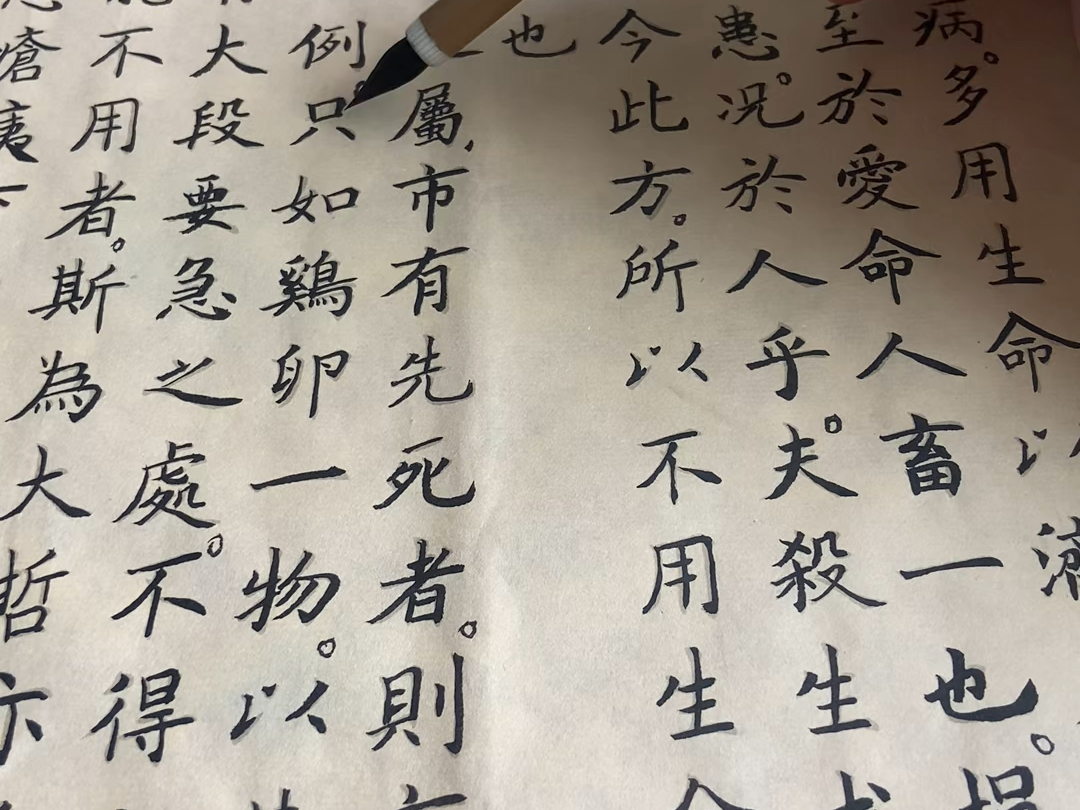 病。多用生命以濟
至於愛命人畜一也。損
患。況於人乎夫。殺生求
今此方。所以不用生命
也
屬，市有先死者。則市
例。只如鷄卵一物。以其
大段要急之處。不得
不用者。斯為大哲亦
瘡